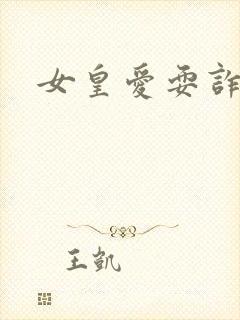 女皇愛耍詐
王凱